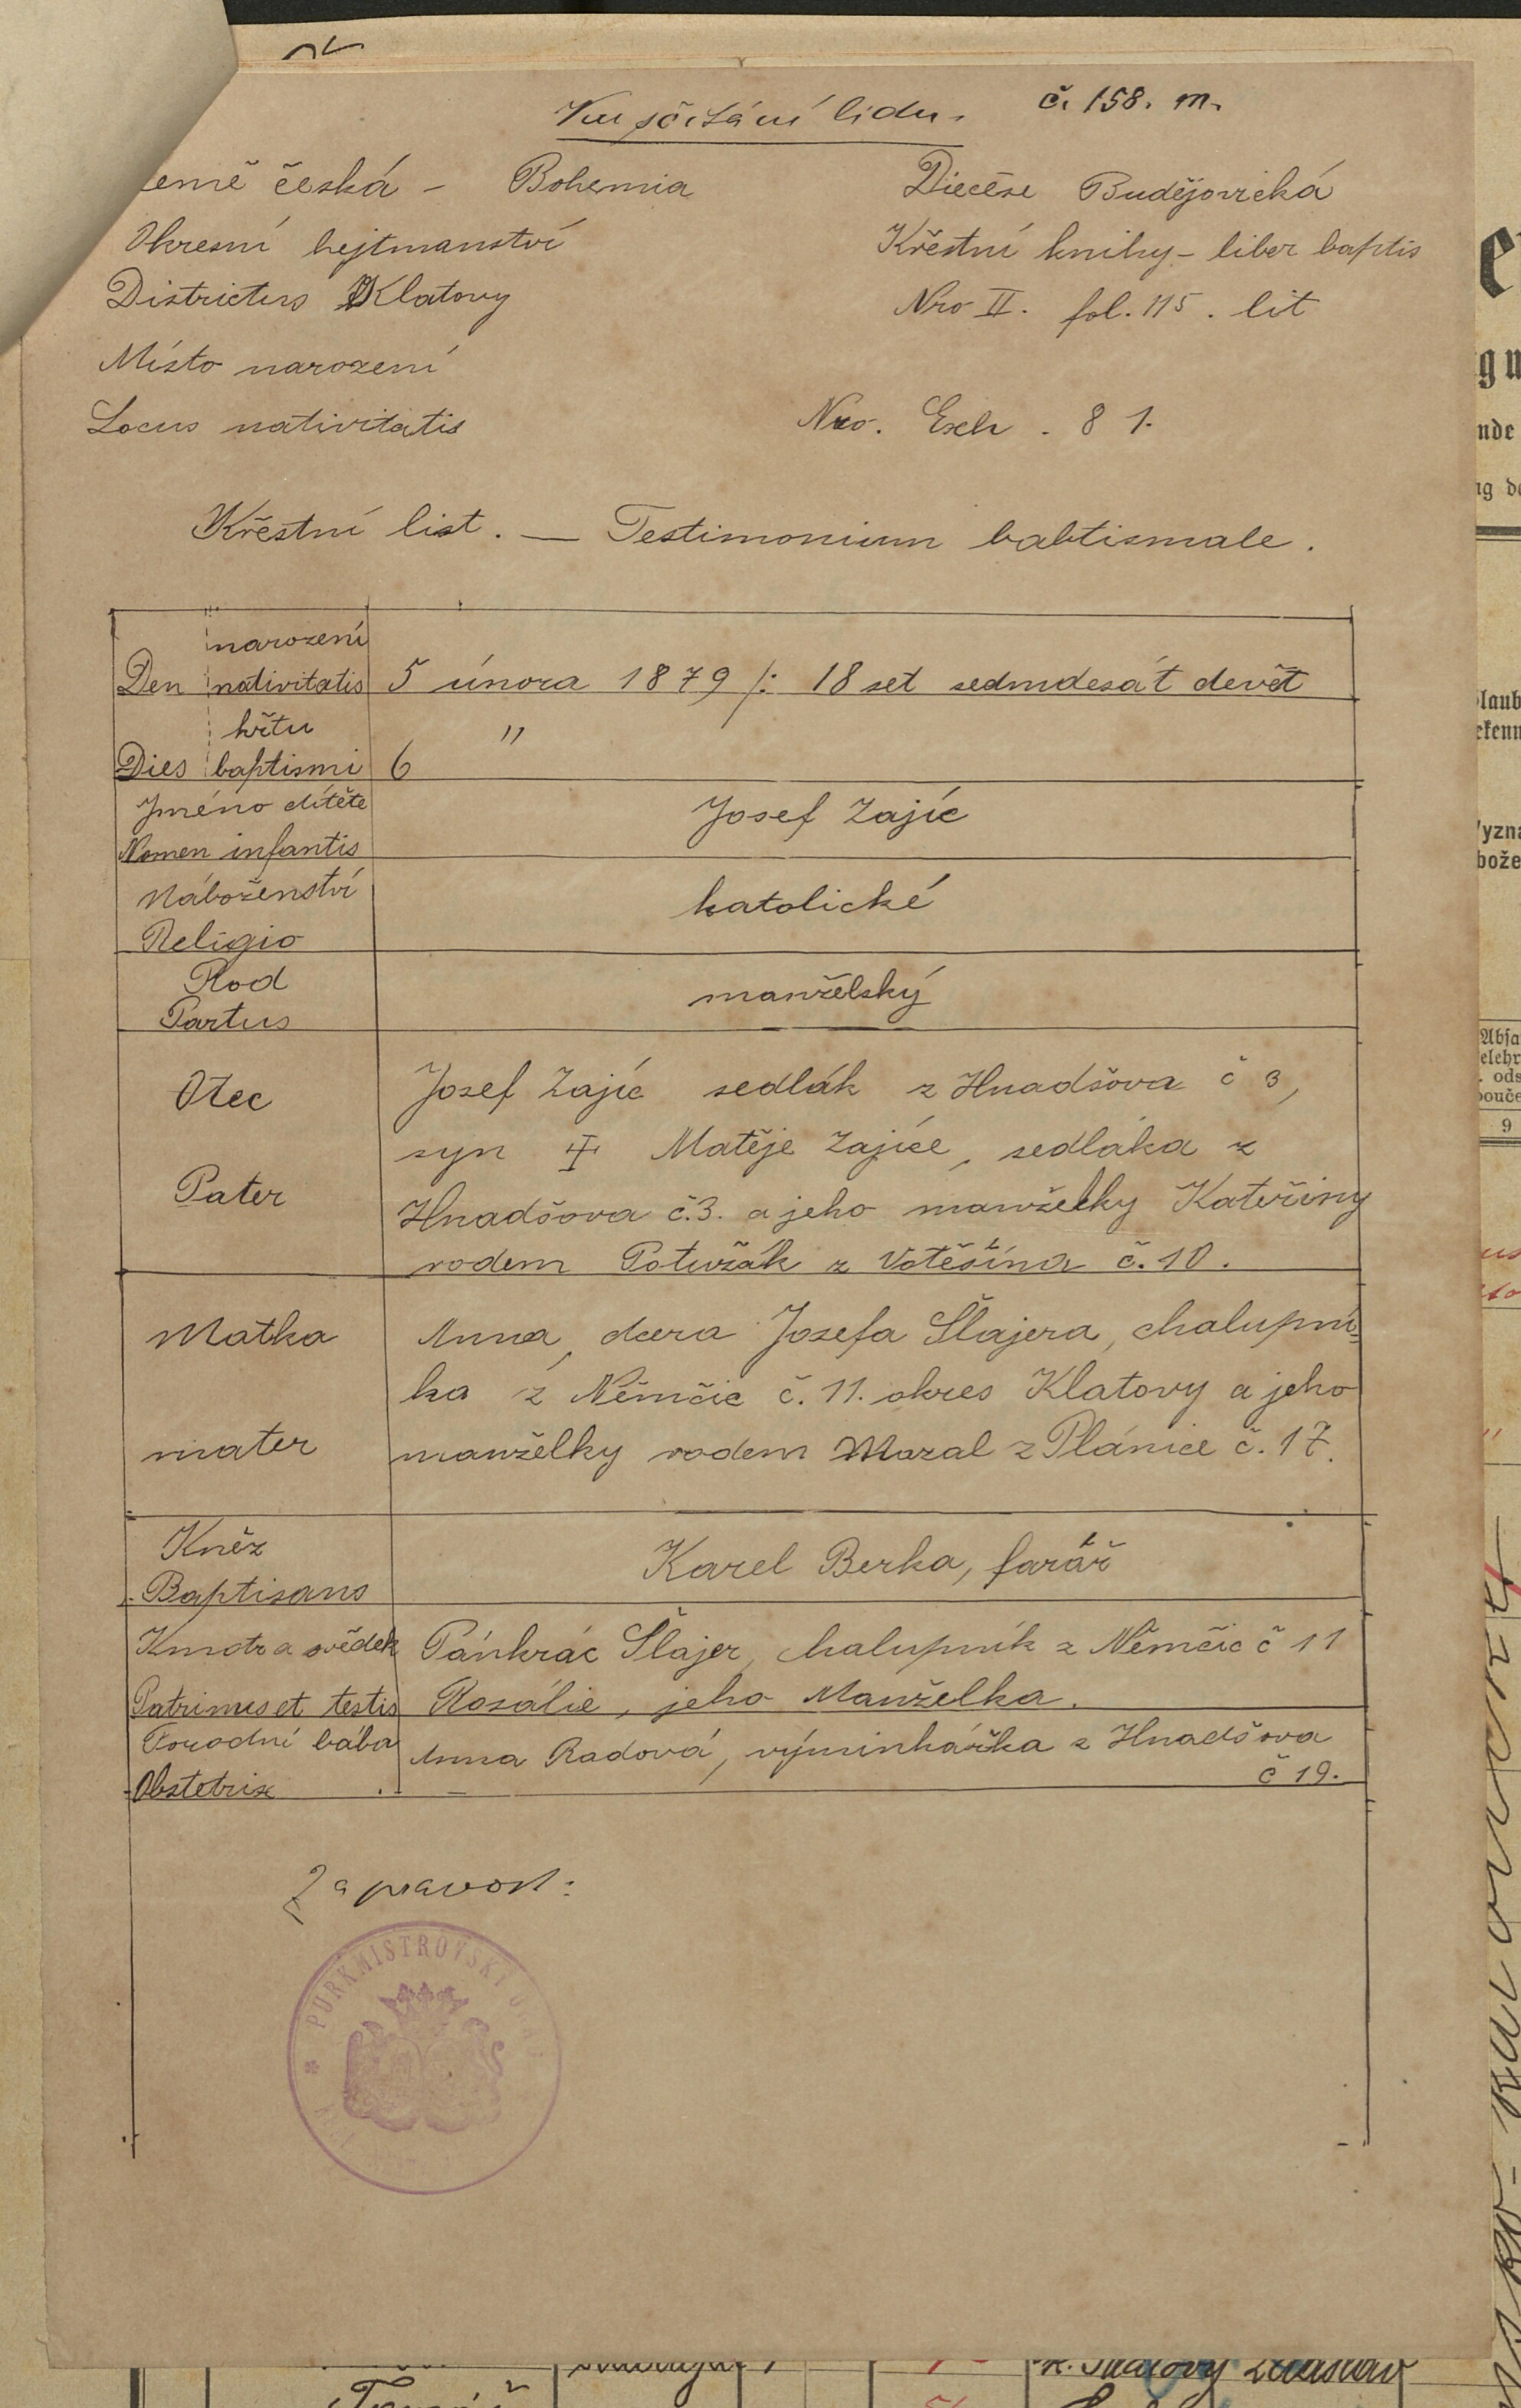 Ku sčítání lidu. č. 158. m.
země česká - Bohemia
Diecése Budějovická
Okresní hejtmanství
Křestní knihy - liber baptis
Districtus Klatovy
Nro II. fol. 115. lit
Místo narození
Locus nativitatis
Nro. Exh. 81.
Křestní list. — Testimonium babtismale.
narození
Den nativitatis 5 února 1879 /: 18 set sedmdesát devět
křtu
Dies baptismi 6 "
Jméno dítěte
Josef Zajíc
Nomen infantis
Náboženství
katolické
Religio
Rod
manželský
Partus
Otec
Josef Zajíc sedlák z Hnadšova č 3,
syn Matěje Zajíce, sedláka z
Pater
Hnadšova č.3. a jeho manželky Kateřiny
rodem Potužák z Votěšína č. 10.
Matka
Anna, dcera Josefa Šlajera, chalupní-
ka z Němčic č. 11. okres Klatovy a jeho
mater
manželky rodem Mazal z Plánice č. 17.
Kněz
Karel Berka, farář
Baptisans
Kmotr a svědek Pánkrác Šlajer, chalupník z Němčic č 11
Patrinus et testis Rosálie, jeho Manželka.
Porodní bába
Anna Radová, výminkářka z Hnadšova
č 19.
Obstetrix
Za pravost:
PURKMISTROVSKÝ